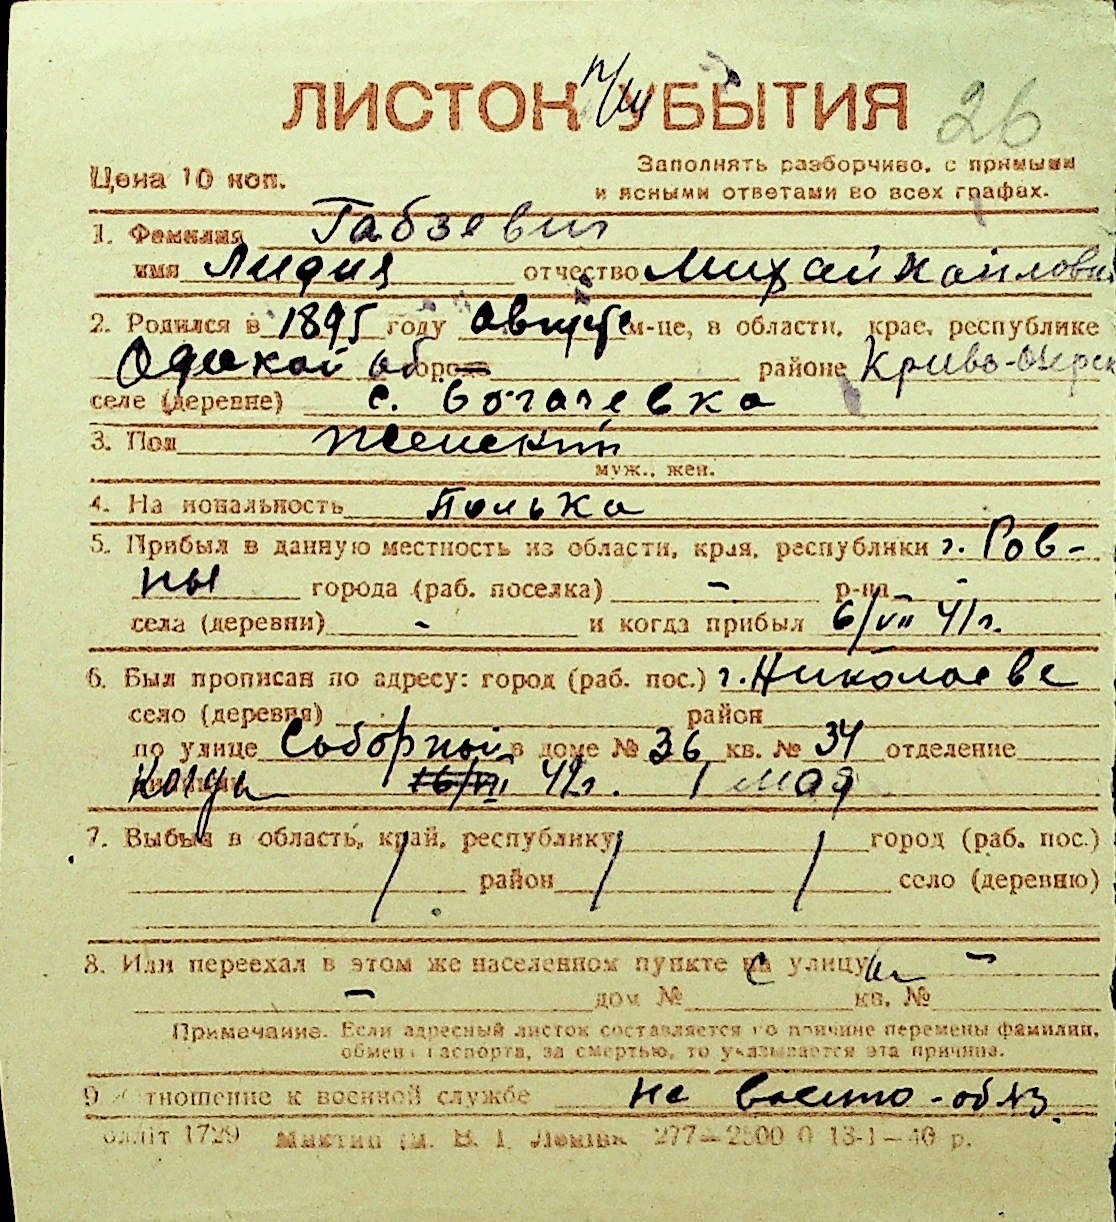 ЛИСТОК УБЫТИЯ 26
п/ш
Цена 10 коп.
Заполнять разборчиво, с прямыми
и ясными ответами во всех графах.
1. Фамилия Габзевич
имя Лидия отчество Михайловна
2. Родился в 1895 году августе м-це, в области, крае, республике
Одеской об районе Криво-Озерск
селе (деревне) с. Богачевка
3. Пол женский
муж., жен.
4. Национальность Полька
5. Прибыл в данную местность из области, края, республики г. Ров-
ны города (раб. поселка) - р-на -
села (деревни) - и когда прибыл 6/VII 41г.
6. Был прописан по адресу: город (раб. пос.) г. Николаеве
село (деревня) район
по улице Соборной в доме № 36 кв. № 34 отделение
Когда 42г. 1 мая
7. Выбыл в область, край, республику город (раб. пос.)
район село (деревню)
8. Или переехал в этом же населенном пункте на улицу -
- дом № кв. №
Примечание. Если адресный листок составляется по причине перемены фамилии,
обмена паспорта, за смертью, то указывается эта причина.
9 Отношение к военной службе не военно-обяз.
олліт 1729 ім. В. І. Леніна 277—2500 0 13-1—40 р.